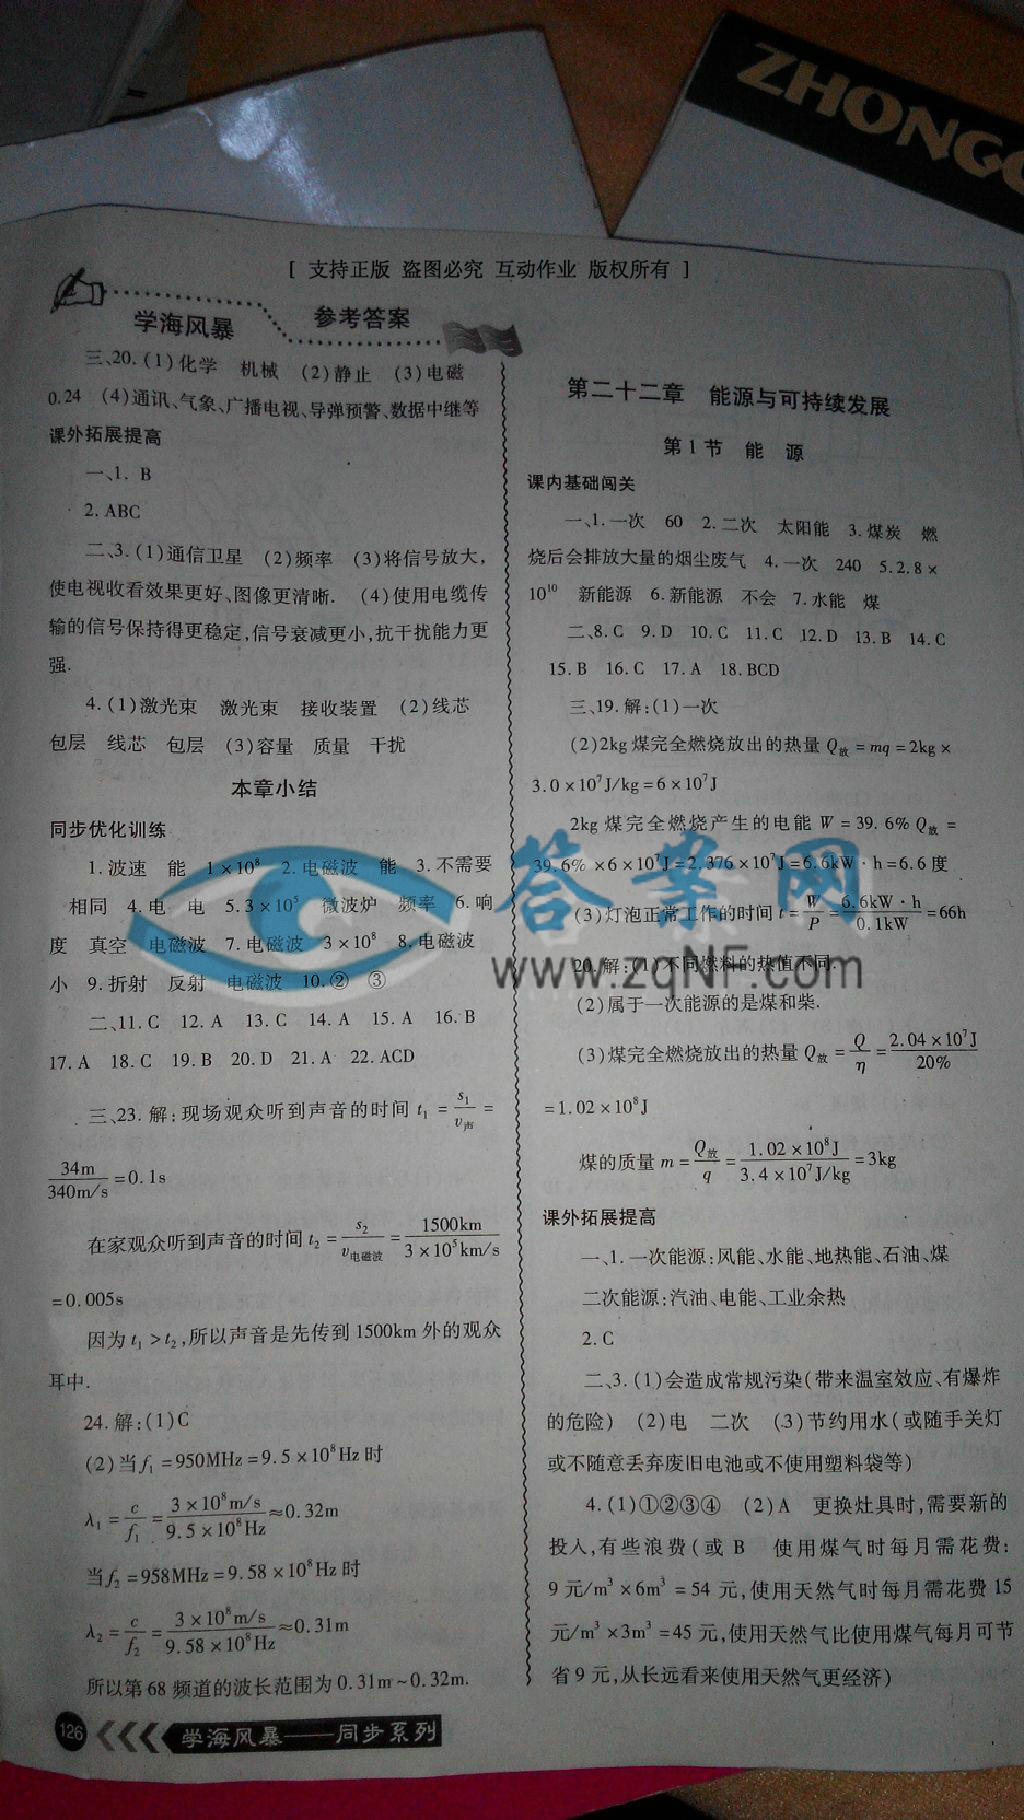 ZHONGG
[ 支持正版 盗图必究 互动作业 版权所有 ]
学海风暴 参考答案
三、20.(1)化学 机械 (2)静止 (3)电磁
0.24 (4)通讯、气象、广播电视、导弹预警、数据中继等
课外拓展提高
一、1. B
2. ABC
二、3.(1)通信卫星 (2)频率 (3)将信号放大,
使电视收看效果更好、图像更清晰. (4)使用电缆传
输的信号保持得更稳定,信号衰减更小,抗干扰能力更
强.
4.(1)激光束 激光束 接收装置 (2)线芯
包层 线芯 包层 (3)容量 质量 干扰
本章小结
同步优化训练
1.波速 能 1×10⁸ 2.电磁波 能 3.不需要
相同 4.电 电 5.3×10⁵ 微波炉 频率 6.响
度 真空 电磁波 7.电磁波 3×10⁸ 8.电磁波
小 9.折射 反射 电磁波 10.② ③
二、11.C 12.A 13.C 14.A 15.A 16.B
17.A 18.C 19.B 20.D 21.A 22.ACD
三、23.解:现场观众听到声音的时间 t₁ = s₁/v声 =
34m/340m/s = 0.1s
在家观众听到声音的时间 t₂ = s₂/v电磁波 = 1500km/3×10⁵km/s
=0.005s
因为 t₁ > t₂,所以声音是先传到1500km外的观众
耳中.
24.解:(1)C
(2)当 f₁ =950MHz=9.5×10⁸Hz时
λ₁ = c/f₁ = 3×10⁸m/s/9.5×10⁸Hz ≈0.32m
当 f₂ =958MHz=9.58×10⁸Hz时
λ₂ = c/f₂ = 3×10⁸m/s/9.58×10⁸Hz ≈0.31m
所以第68频道的波长范围为0.31m~0.32m.
126 学海风暴——同步系列
第二十二章 能源与可持续发展
第1节 能 源
课内基础闯关
一、1.一次 60 2.二次 太阳能 3.煤炭 燃
烧后会排放大量的烟尘废气 4.一次 240 5.2.8×
10¹⁰ 新能源 6.新能源 不会 7.水能 煤
二、8.C 9.D 10.C 11.C 12.D 13.B 14.C
15.B 16.C 17.A 18.BCD
三、19.解:(1)一次
(2)2kg煤完全燃烧放出的热量 Q放 = mq =2kg×
3.0×10⁷J/kg=6×10⁷J
2kg煤完全燃烧产生的电能 W = 39.6% Q放 =
39.6%×6×10⁷J=2.376×10⁷J=6.6kW·h=6.6度
(3)灯泡正常工作的时间 t = W/P = 6.6kW·h/0.1kW =66h
20.解:(1)不同燃料的热值不同.
(2)属于一次能源的是煤和柴.
(3)煤完全燃烧放出的热量 Q放 = Q/η = 2.04×10⁷J/20%
=1.02×10⁸J
煤的质量 m = Q放/q = 1.02×10⁸J/3.4×10⁷J/kg =3kg
课外拓展提高
一、1.一次能源:风能、水能、地热能、石油、煤
二次能源:汽油、电能、工业余热
2.C
二、3.(1)会造成常规污染(带来温室效应、有爆炸
的危险) (2)电 二次 (3)节约用水(或随手关灯
或不随意丢弃废旧电池或不使用塑料袋等)
4.(1)①②③④ (2)A 更换灶具时,需要新的
投入,有些浪费(或B 使用煤气时每月需花费:
9元/m³×6m³=54元,使用天然气时每月需花费15
元/m³×3m³=45元,使用天然气比使用煤气每月可节
省9元,从长远看来使用天然气更经济)
答案网
www.zqNF.com